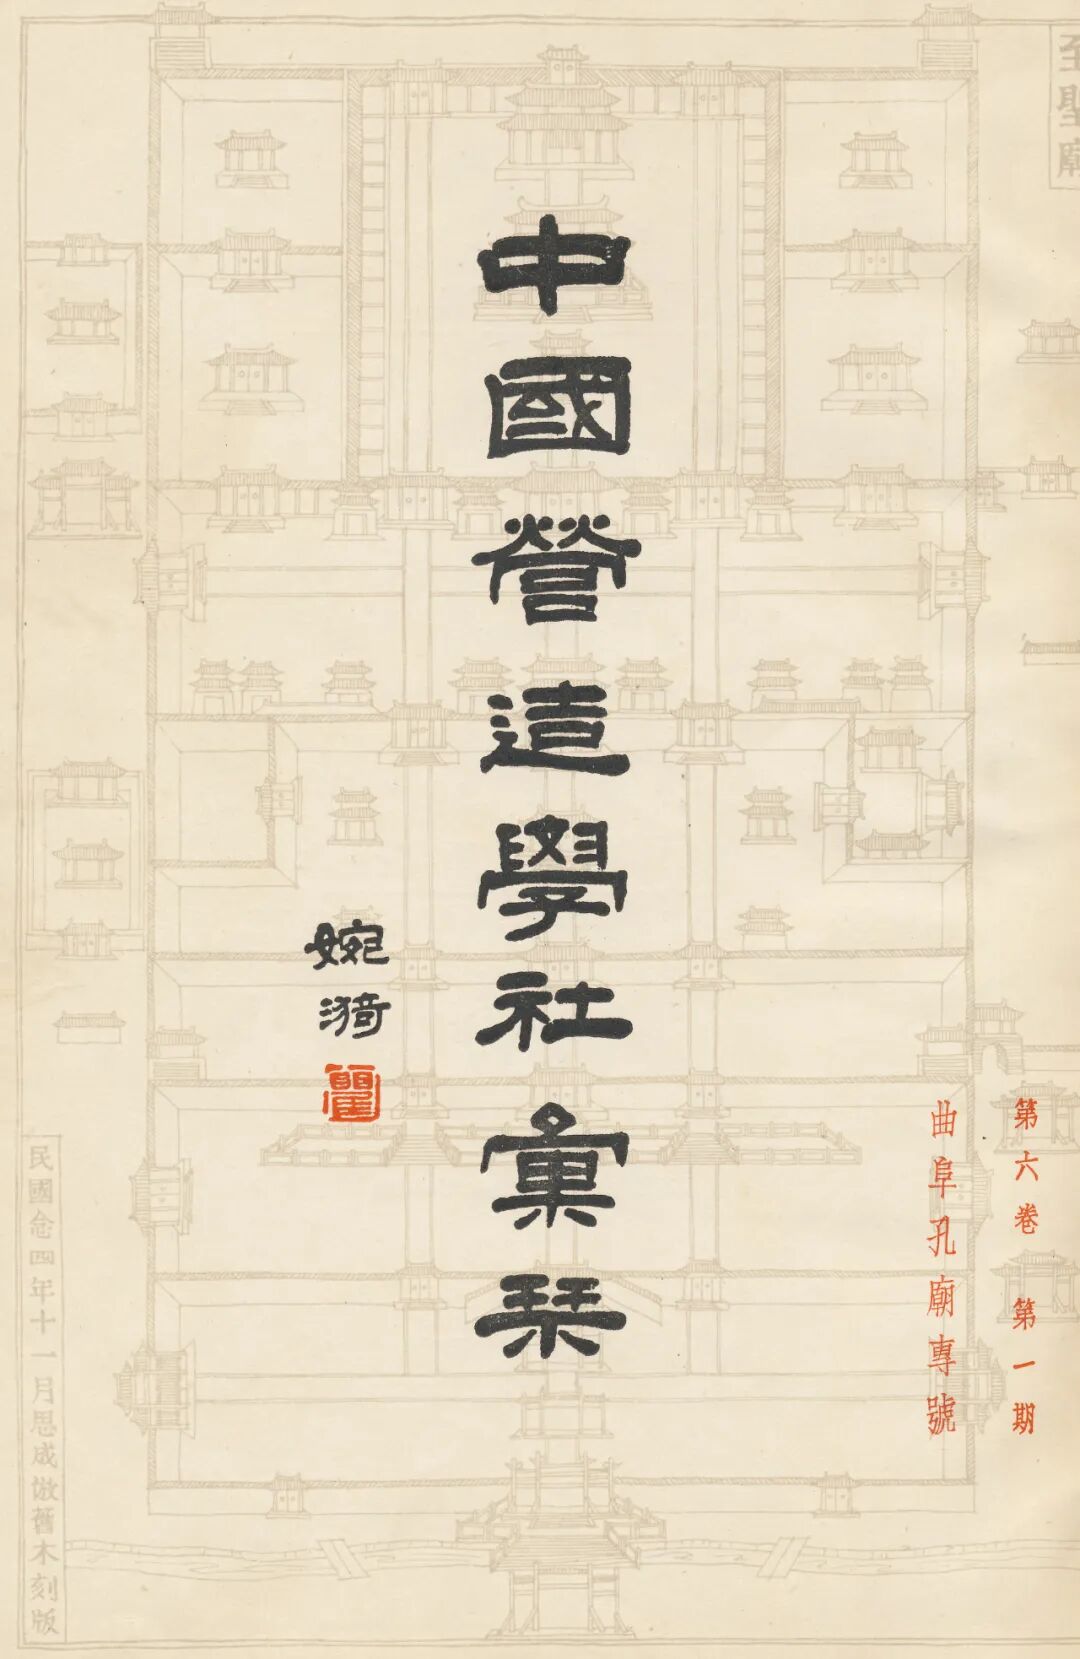 至聖廟
第六卷 第一期
曲阜孔廟專號
中國營造學社彙栞
婉漪
民國念四年十一月思成倣舊木刻版